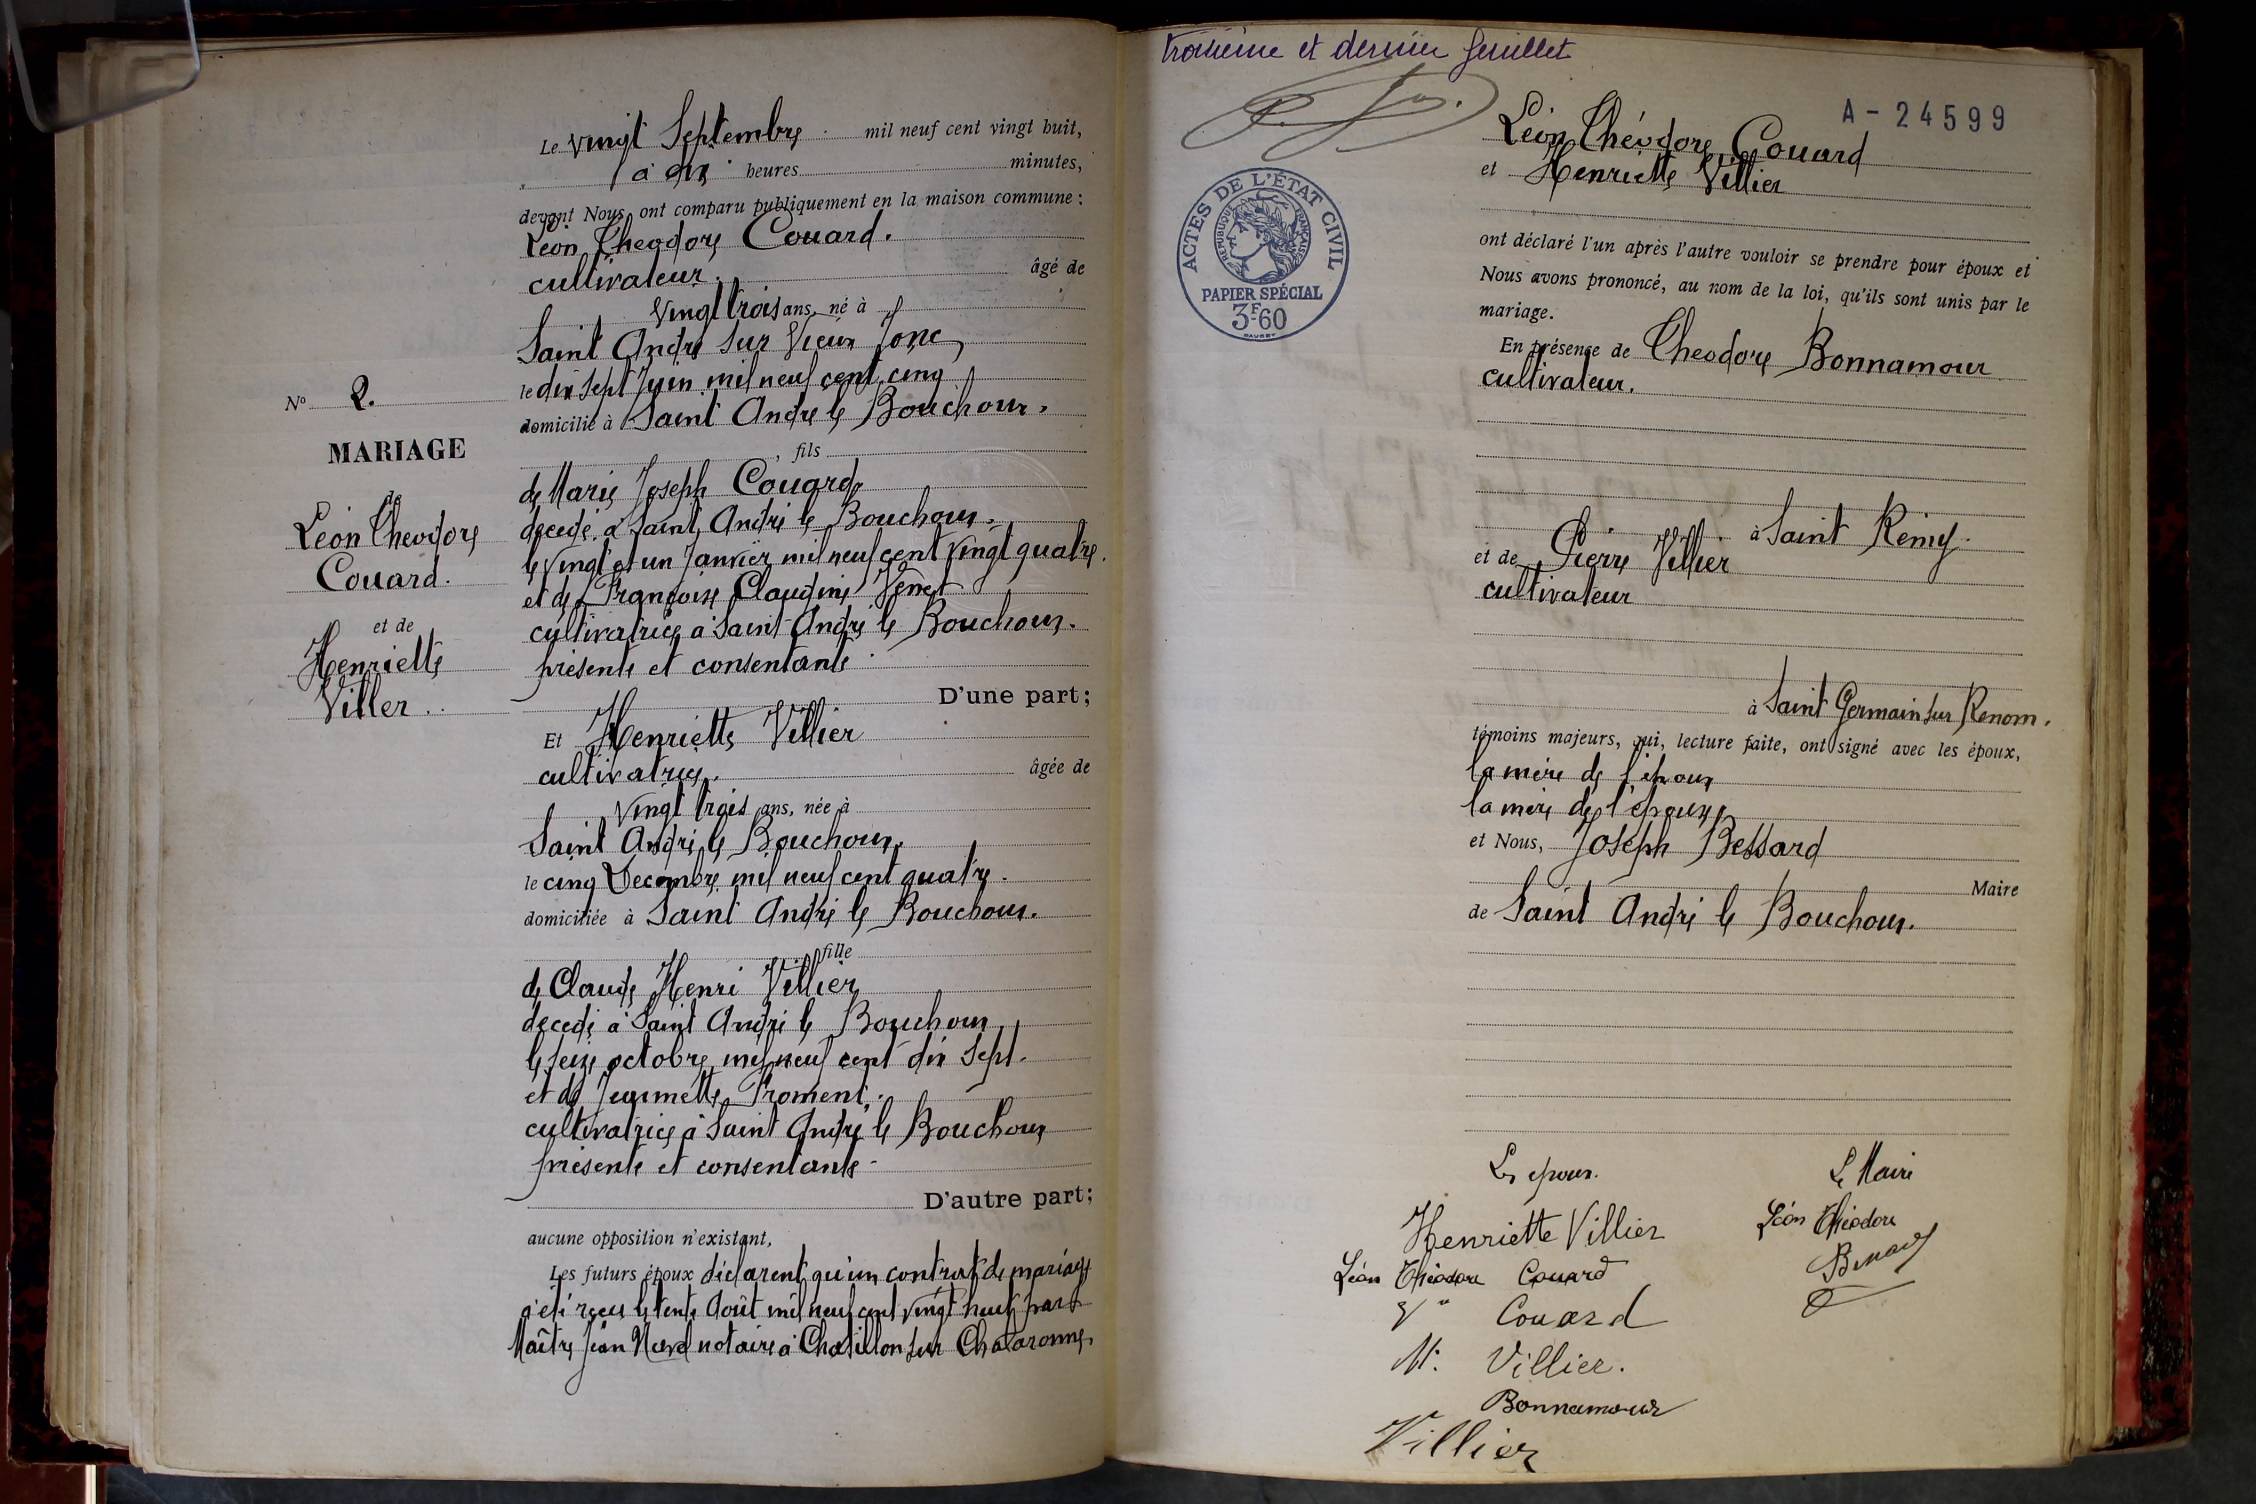 Le vingt Septembre mil neuf cent vingt huit,
à dix heures minutes,
devant Nous ont comparu publiquement en la maison commune :
Léon Theodore Couard.
cultivateur. âgé de
Vingt trois ans, né à
Saint Andre sur Vieux Jonc
le dix sept Juin mil neuf cent cinq
domicilié à Saint Andre le Bouchoux.
fils
de Marie Joseph Couard
decedé à Saint André le Bouchoux.
le vingt et un Janvier mil neuf cent vingt quatre.
et de Françoise Claudine Venet
cultivatrice à Saint André le Bouchoux.
présente et consentante
D'une part;
Et Henriette Villier
cultivatrice. âgée de
Vingt trois ans, née à
Saint André le Bouchoux.
le cinq Decembre mil neuf cent quatre.
domiciliée à Saint André le Bouchoux.
fille
de Claude Henri Villier
decedé à Saint André le Bouchoux
le seize octobre mil neuf cent dix sept.
et de Jeannette Froment.
cultivatrice à Saint André le Bouchoux
présente et consentante
D'autre part;
aucune opposition n'existant,
Les futurs époux déclarent qu'un contrat de mariage
a été reçu le trente Août mil neuf cent vingt huit par
Maître Jean notaire à Chatillon sur Chalaronne.
No 2.
MARIAGE
de
Léon Theodore
Couard.
et de
Henriette
Viller
troisième et dernier feuillet
A - 24599
ACTES DE L'ÉTAT CIVIL
RÉPUBLIQUE FRANÇAISE
PAPIER SPÉCIAL
3F60
Léon Théodore Couard
et Henriette Villier
ont déclaré l'un après l'autre vouloir se prendre pour époux et
Nous avons prononcé, au nom de la loi, qu'ils sont unis par le
mariage.
En présence de Theodore Bonnamour
cultivateur.
à Saint Remy.
et de Pierre Villier
cultivateur
à Saint Germain sur Renom.
témoins majeurs, qui, lecture faite, ont signé avec les époux,
la mère de l'époux
la mère de l'épouse
et Nous, Joseph Bessard
Maire
de Saint André le Bouchoux.
Les époux. Le Maire
Henriette Villier
Léon Théodore
Léon Théodore Couard
Couard
M. Villier.
Bonnamour
Villier